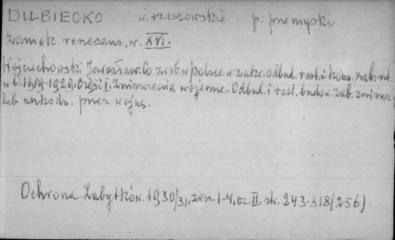 DUBIECKO w. rzeszowskie p. przemyski
zamek renesans., w. XVI.
Wojciechowski Jarosław. Co zrob. w Polsce w zakr. odbud. rest. i kons. zab. nt.
w l. 1919-1929. Część I. Zniszczenia wojenne. Odbud. i rest. budow. zab. zniszcz.
lub uszkodz. przez wojnę.
Ochrona Zabytków. 1930/31, zesz. 1-4, cz. II, str. 243-318 (256)